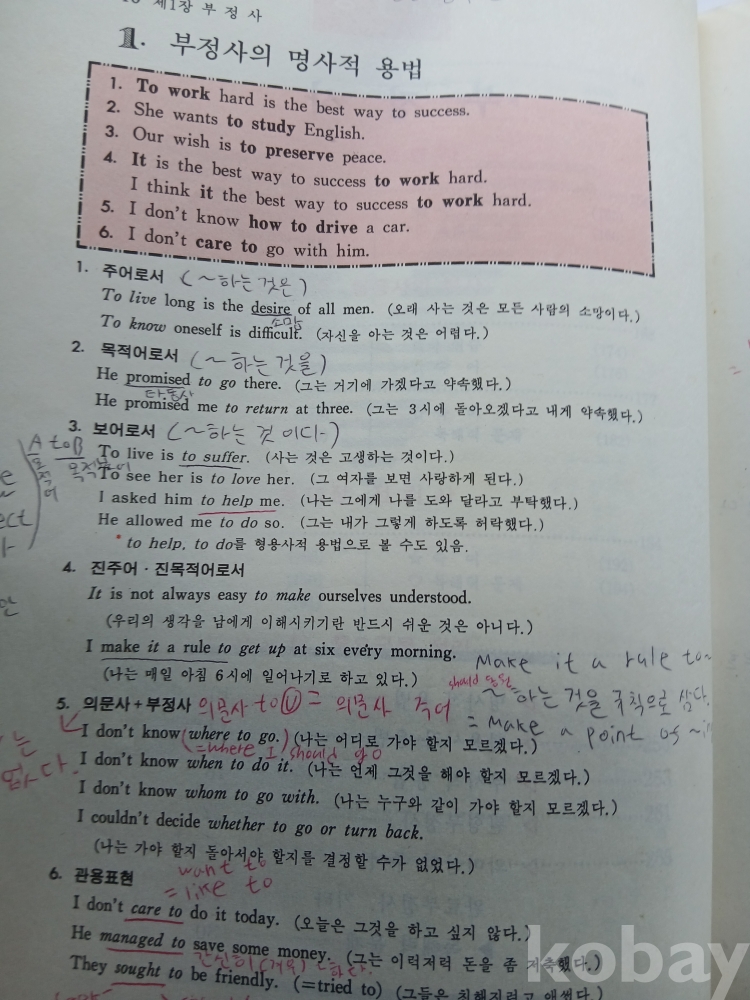 제1장 부 정 사
1. 부정사의 명사적 용법
1. To work hard is the best way to success.
2. She wants to study English.
3. Our wish is to preserve peace.
4. It is the best way to success to work hard.
I think it the best way to success to work hard.
5. I don't know how to drive a car.
6. I don't care to go with him.
1. 주어로서 (~하는 것은)
To live long is the desire of all men. (오래 사는 것은 모든 사람의 소망이다.)
소망
To know oneself is difficult. (자신을 아는 것은 어렵다.)
2. 목적어로서 (~하는 것을)
He promised to go there. (그는 거기에 가겠다고 약속했다.)
타동사
He promised me to return at three. (그는 3시에 돌아오겠다고 내게 약속했다.)
3. 보어로서 (~하는 것 이다)
A to B
To live is to suffer. (사는 것은 고생하는 것이다.)
목적어
To see her is to love her. (그 여자를 보면 사랑하게 된다.)
I asked him to help me. (나는 그에게 나를 도와 달라고 부탁했다.)
He allowed me to do so. (그는 내가 그렇게 하도록 허락했다.)
* to help, to do를 형용사적 용법으로 볼 수도 있음.
4. 진주어·진목적어로서
It is not always easy to make ourselves understood.
(우리의 생각을 남에게 이해시키기란 반드시 쉬운 것은 아니다.)
I make it a rule to get up at six every morning.
(나는 매일 아침 6시에 일어나기로 하고 있다.)
Make it a rule to~
~하는 것을 규칙으로 삼다.
= Make a point of ~i
5. 의문사+부정사 의문사 to ⓥ = 의문사 주어 should 동원
I don't know (where to go.) (나는 어디로 가야 할지 모르겠다.)
=where I should go
I don't know when to do it. (나는 언제 그것을 해야 할지 모르겠다.)
I don't know whom to go with. (나는 누구와 같이 가야 할지 모르겠다.)
I couldn't decide whether to go or turn back.
(나는 가야 할지 돌아서야 할지를 결정할 수가 없었다.)
6. 관용표현
want to
= like to
I don't care to do it today. (오늘은 그것을 하고 싶지 않다.)
He managed to save some money. (그는 이럭저럭 돈을 좀 저축했다.)
간신히 (겨우) ~하다.
They sought to be friendly. (=tried to) (그들은 친해지려고 애썼다.)
kobay